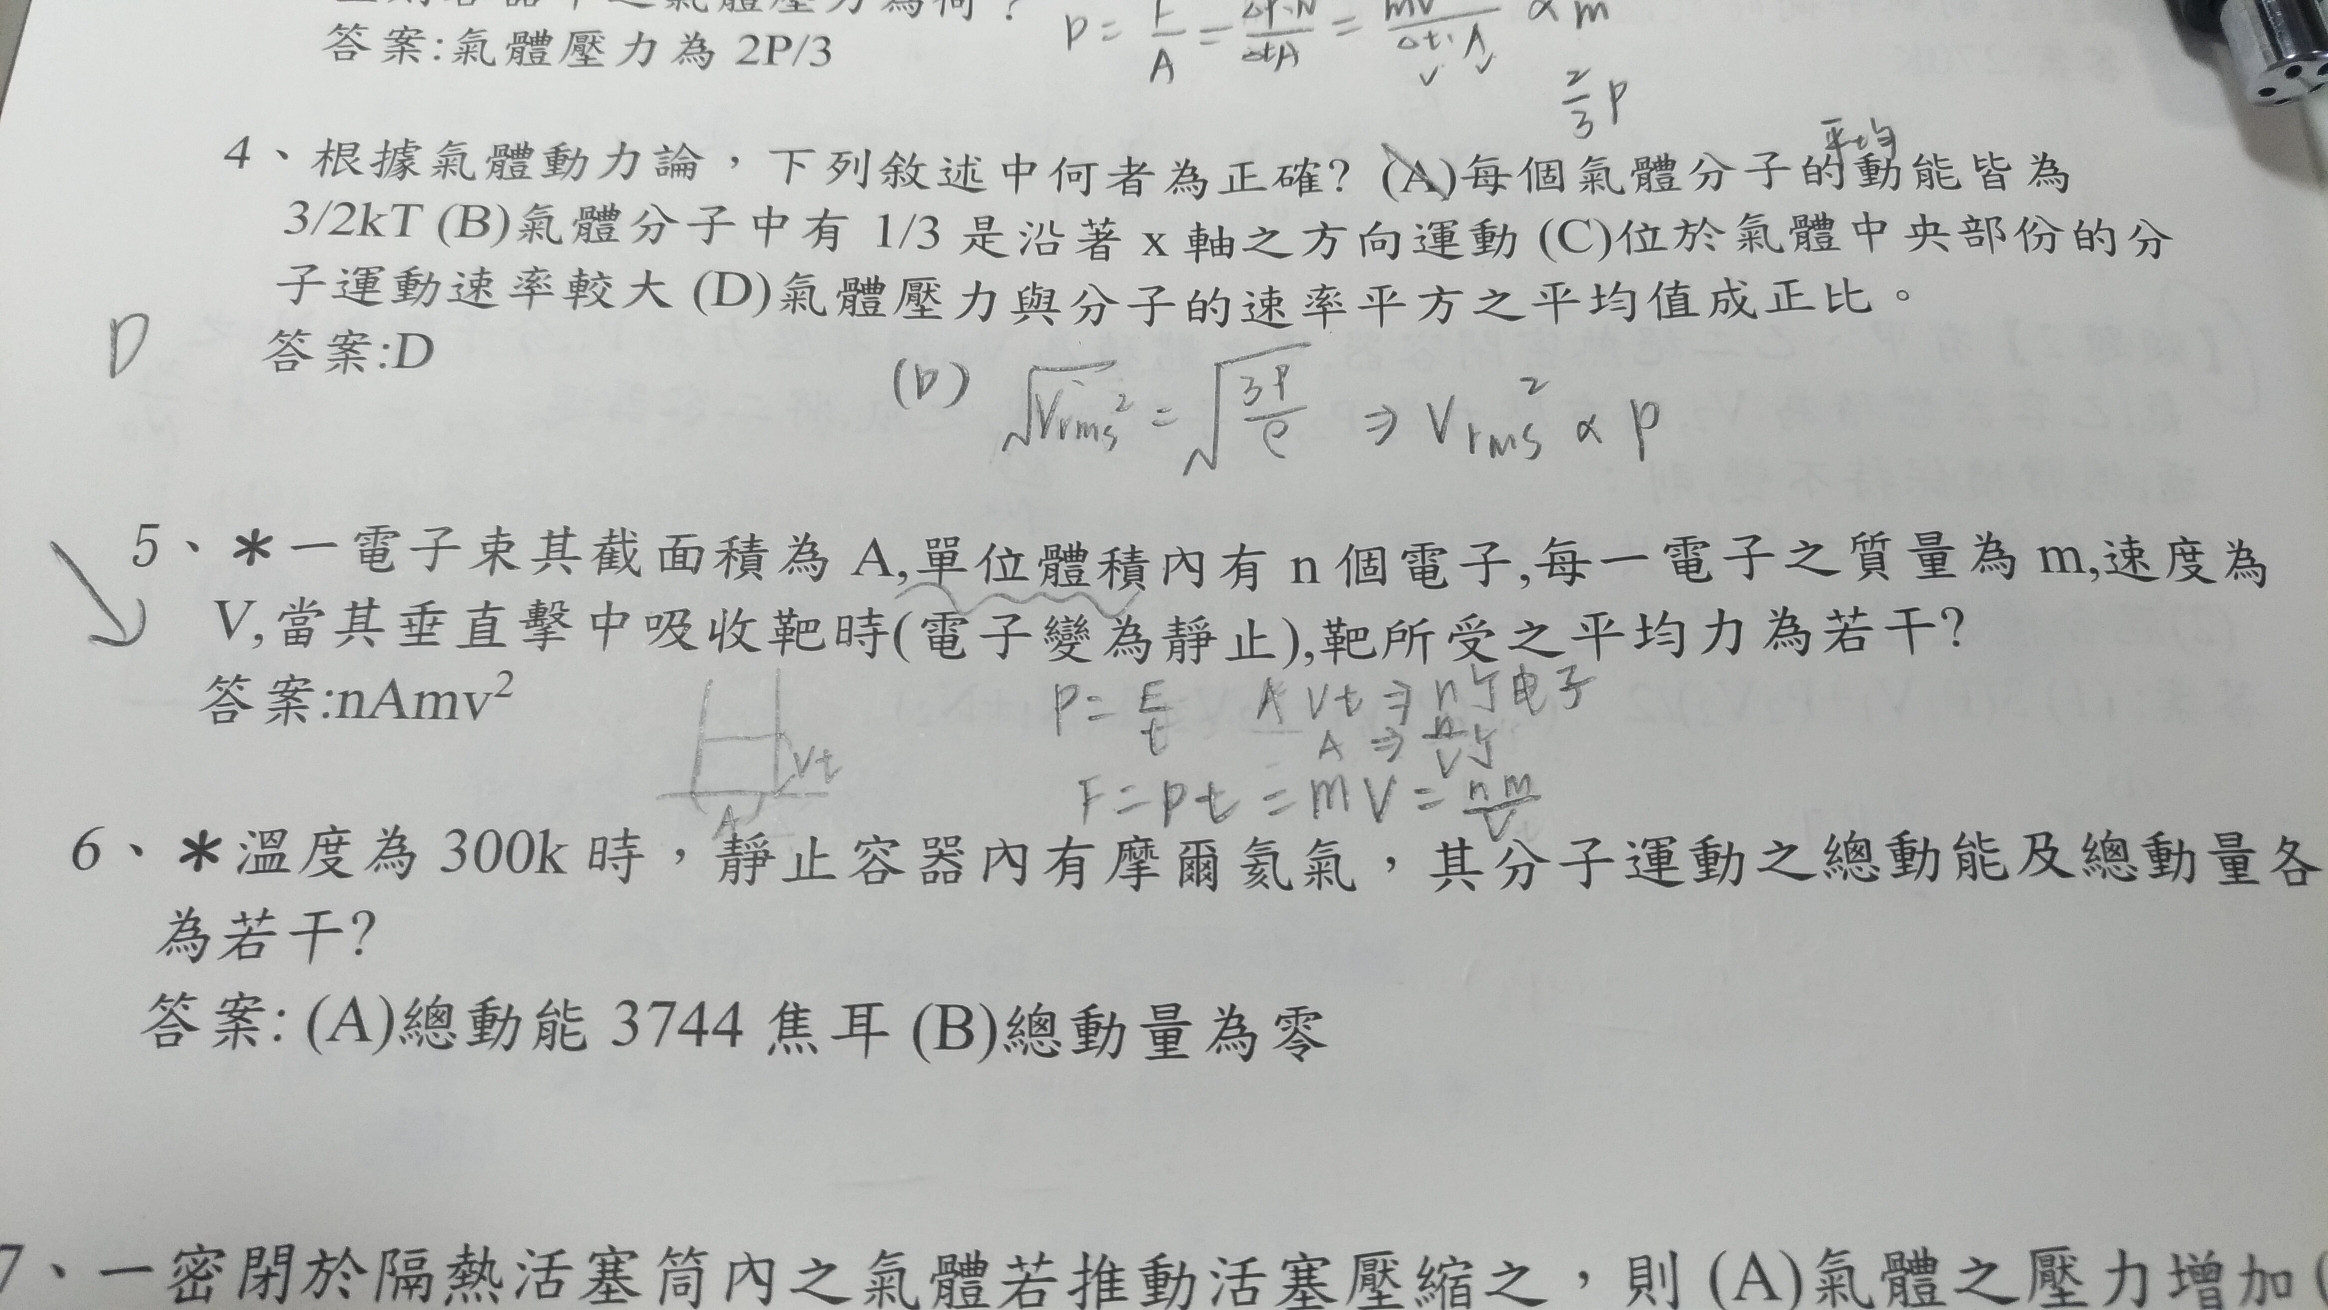 答案:氣體壓力為 2P/3
P = F/A = ΔP·N/ΔtA = mv/Δt·A ∝ m
2/3 P
平均
4、根據氣體動力論,下列敘述中何者為正確? (A)每個氣體分子的動能皆為
3/2kT (B)氣體分子中有 1/3 是沿著 x 軸之方向運動 (C)位於氣體中央部份的分
子運動速率較大 (D)氣體壓力與分子的速率平方之平均值成正比。
D
答案:D
(D) √Vrms² = √3P/ρ ⇒ Vrms² ∝ P
5、*一電子束其截面積為 A,單位體積內有 n 個電子,每一電子之質量為 m,速度為
V,當其垂直擊中吸收靶時(電子變為靜止),靶所受之平均力為若干?
答案:nAmv²
Vt
A
P = F/t A Vt ⇒ n个电子
A ⇒ n/V个
F = Pt = mV = nm/V
6、*溫度為 300k 時,靜止容器內有摩爾氦氣,其分子運動之總動能及總動量各
為若干?
答案: (A)總動能 3744 焦耳 (B)總動量為零
7、一密閉於隔熱活塞筒內之氣體若推動活塞壓縮之,則 (A)氣體之壓力增加(